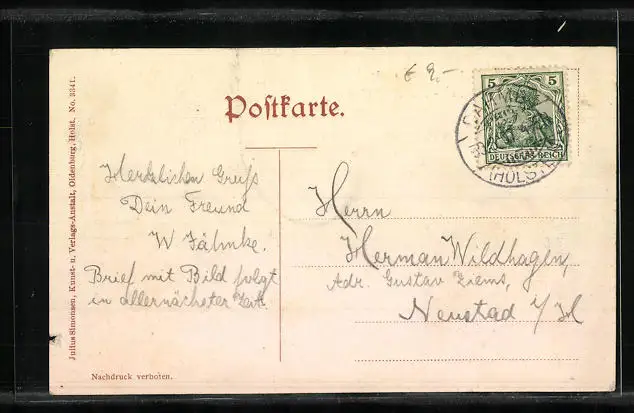 € 9,-
Postkarte.
5 5
DEUTSCHES REICH
(HOLST.)
Julius Simonsen, Kunst- u. Verlags-Anstalt, Oldenburg, Holst. No. 3341.
Herzlichen Gruß
Dein Freund
W Jähnke.
Brief mit Bild folgt
in allernächster Zeit.
Herrn
Herman Wildhagen,
Adr. Gustav Ziems,
Neustad i/H
Nachdruck verboten.